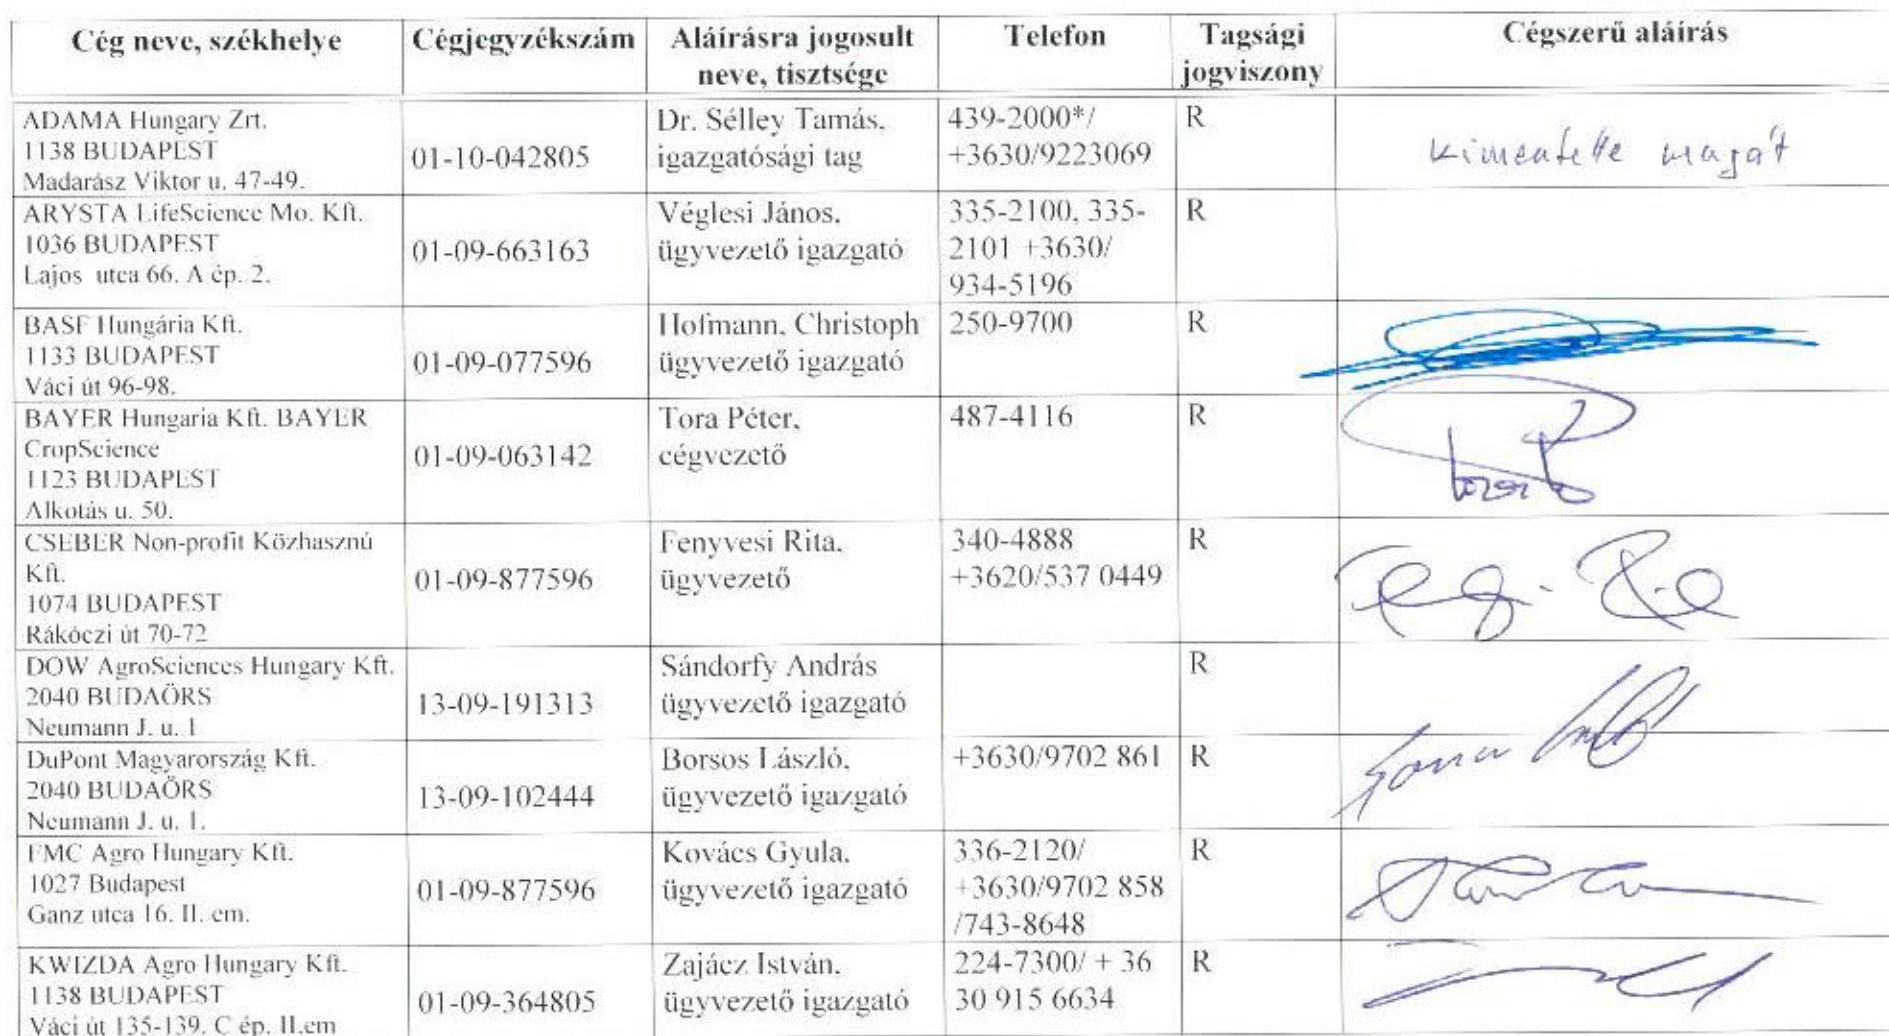 Cég neve, székhelye Cégjegyzékszám Aláírásra jogosult Telefon Tagsági Cégszerű aláírás
neve, tisztsége jogviszony
ADAMA Hungary Zrt.
1138 BUDAPEST
Madarász Viktor u. 47-49.
01-10-042805
Dr. Sélley Tamás,
igazgatósági tag
439-2000*/
+3630/9223069
R
kimentette magát
ARYSTA LifeScience Mo. Kft.
1036 BUDAPEST
Lajos utca 66. A ép. 2.
01-09-663163
Véglesi János,
ügyvezető igazgató
335-2100, 335-
2101 +3630/
934-5196
R
BASF Hungária Kft.
1133 BUDAPEST
Váci út 96-98.
01-09-077596
Hofmann, Christoph
ügyvezető igazgató
250-9700
R
BAYER Hungaria Kft. BAYER
CropScience
1123 BUDAPEST
Alkotás u. 50.
01-09-063142
Tora Péter,
cégvezető
487-4116
R
CSEBER Non-profit Közhasznú
Kft.
1074 BUDAPEST
Rákóczi út 70-72
01-09-877596
Fenyvesi Rita,
ügyvezető
340-4888
+3620/537 0449
R
DOW AgroSciences Hungary Kft.
2040 BUDAÖRS
Neumann J. u. 1
13-09-191313
Sándorfy András
ügyvezető igazgató
R
DuPont Magyarország Kft.
2040 BUDAÖRS
Neumann J. u. 1.
13-09-102444
Borsos László,
ügyvezető igazgató
+3630/9702 861
R
FMC Agro Hungary Kft.
1027 Budapest
Ganz utca 16. II. em.
01-09-877596
Kovács Gyula,
ügyvezető igazgató
336-2120/
+3630/9702 858
/743-8648
R
KWIZDA Agro Hungary Kft.
1138 BUDAPEST
Váci út 135-139. C ép. II.em
01-09-364805
Zajácz István,
ügyvezető igazgató
224-7300/ + 36
30 915 6634
R